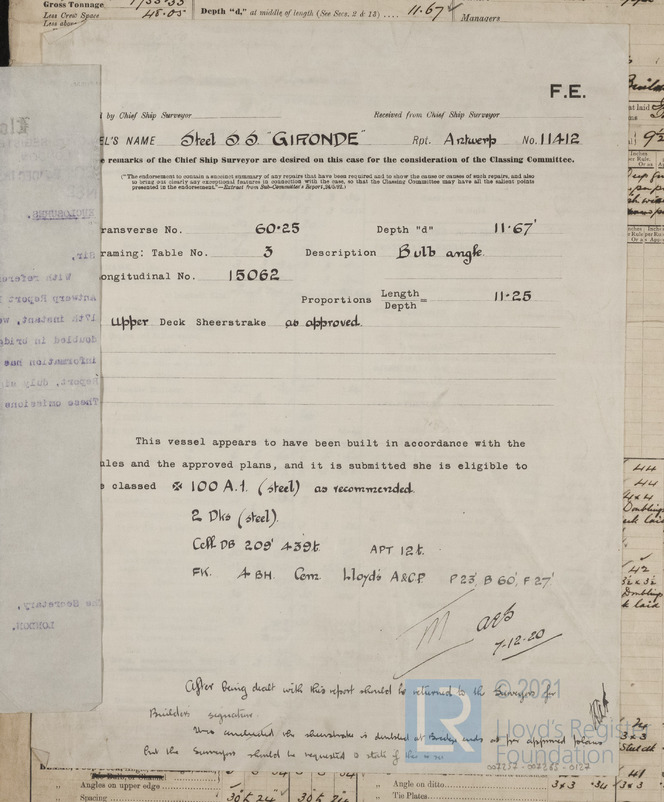 Gross Tonnage
Less Crest Space 48.05
Depth "d," at middle of length (See Secs. 2 & 13) .... 11.67
Managers
F.E.
by Chief Ship Surveyor
Received from Chief Ship Surveyor
EL'S NAME Steel SS "GIRONDE" Rpt. Antwerp No. 11412
e remarks of the Chief Ship Surveyor are desired on this case for the consideration of the Classing Committee.
("The endorsement to contain a succinct summary of any repairs that have been required and to show the cause or causes of such repairs, and also
to bring out clearly any exceptional features in connection with the case, so that the Classing Committee may have all the salient points
presented in the endorsement."—Extract from Sub-Committee's Report,
ransverse No. 60.25 Depth "d" 11.67'
raming: Table No. 3 Description Bulb angle
ongitudinal No. 15062
Proportions Length = 11.25
Depth
Upper Deck Sheerstrake as approved.
This vessel appears to have been built in accordance with the
ules and the approved plans, and it is submitted she is eligible to
classed ✠ 100 A.1. (steel) as recommended.
2 Dks (steel).
Cell DB 209' 439t. APT 12t.
FK. 4 BH. Cem. Lloyd's A&CP P 23', B 60', F 27'
7-12-20
After being dealt with this report should be returned to the Surveyor for
Builders signature
the sheerstrake is doubled at Bridge ends as per approved plans
but the Surveyor should be requested to state if this is so
ENCLOSURES.
Sir,
With refere
Antwerp Report
17th instant, we
doubled in bridg
information has
Report, duly
These omissions
The Secretary,
LONDON.
© 2021
Lloyd's Register
Foundation
Angles on upper edge
Spacing
Angle on ditto 3x3
Tie Plates